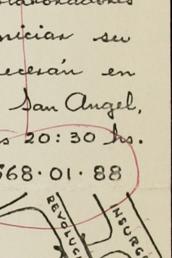 niciar su
ecerán en
San Angel,
s 20:30 hs.
568·01·88
REVOLUC
INSURG